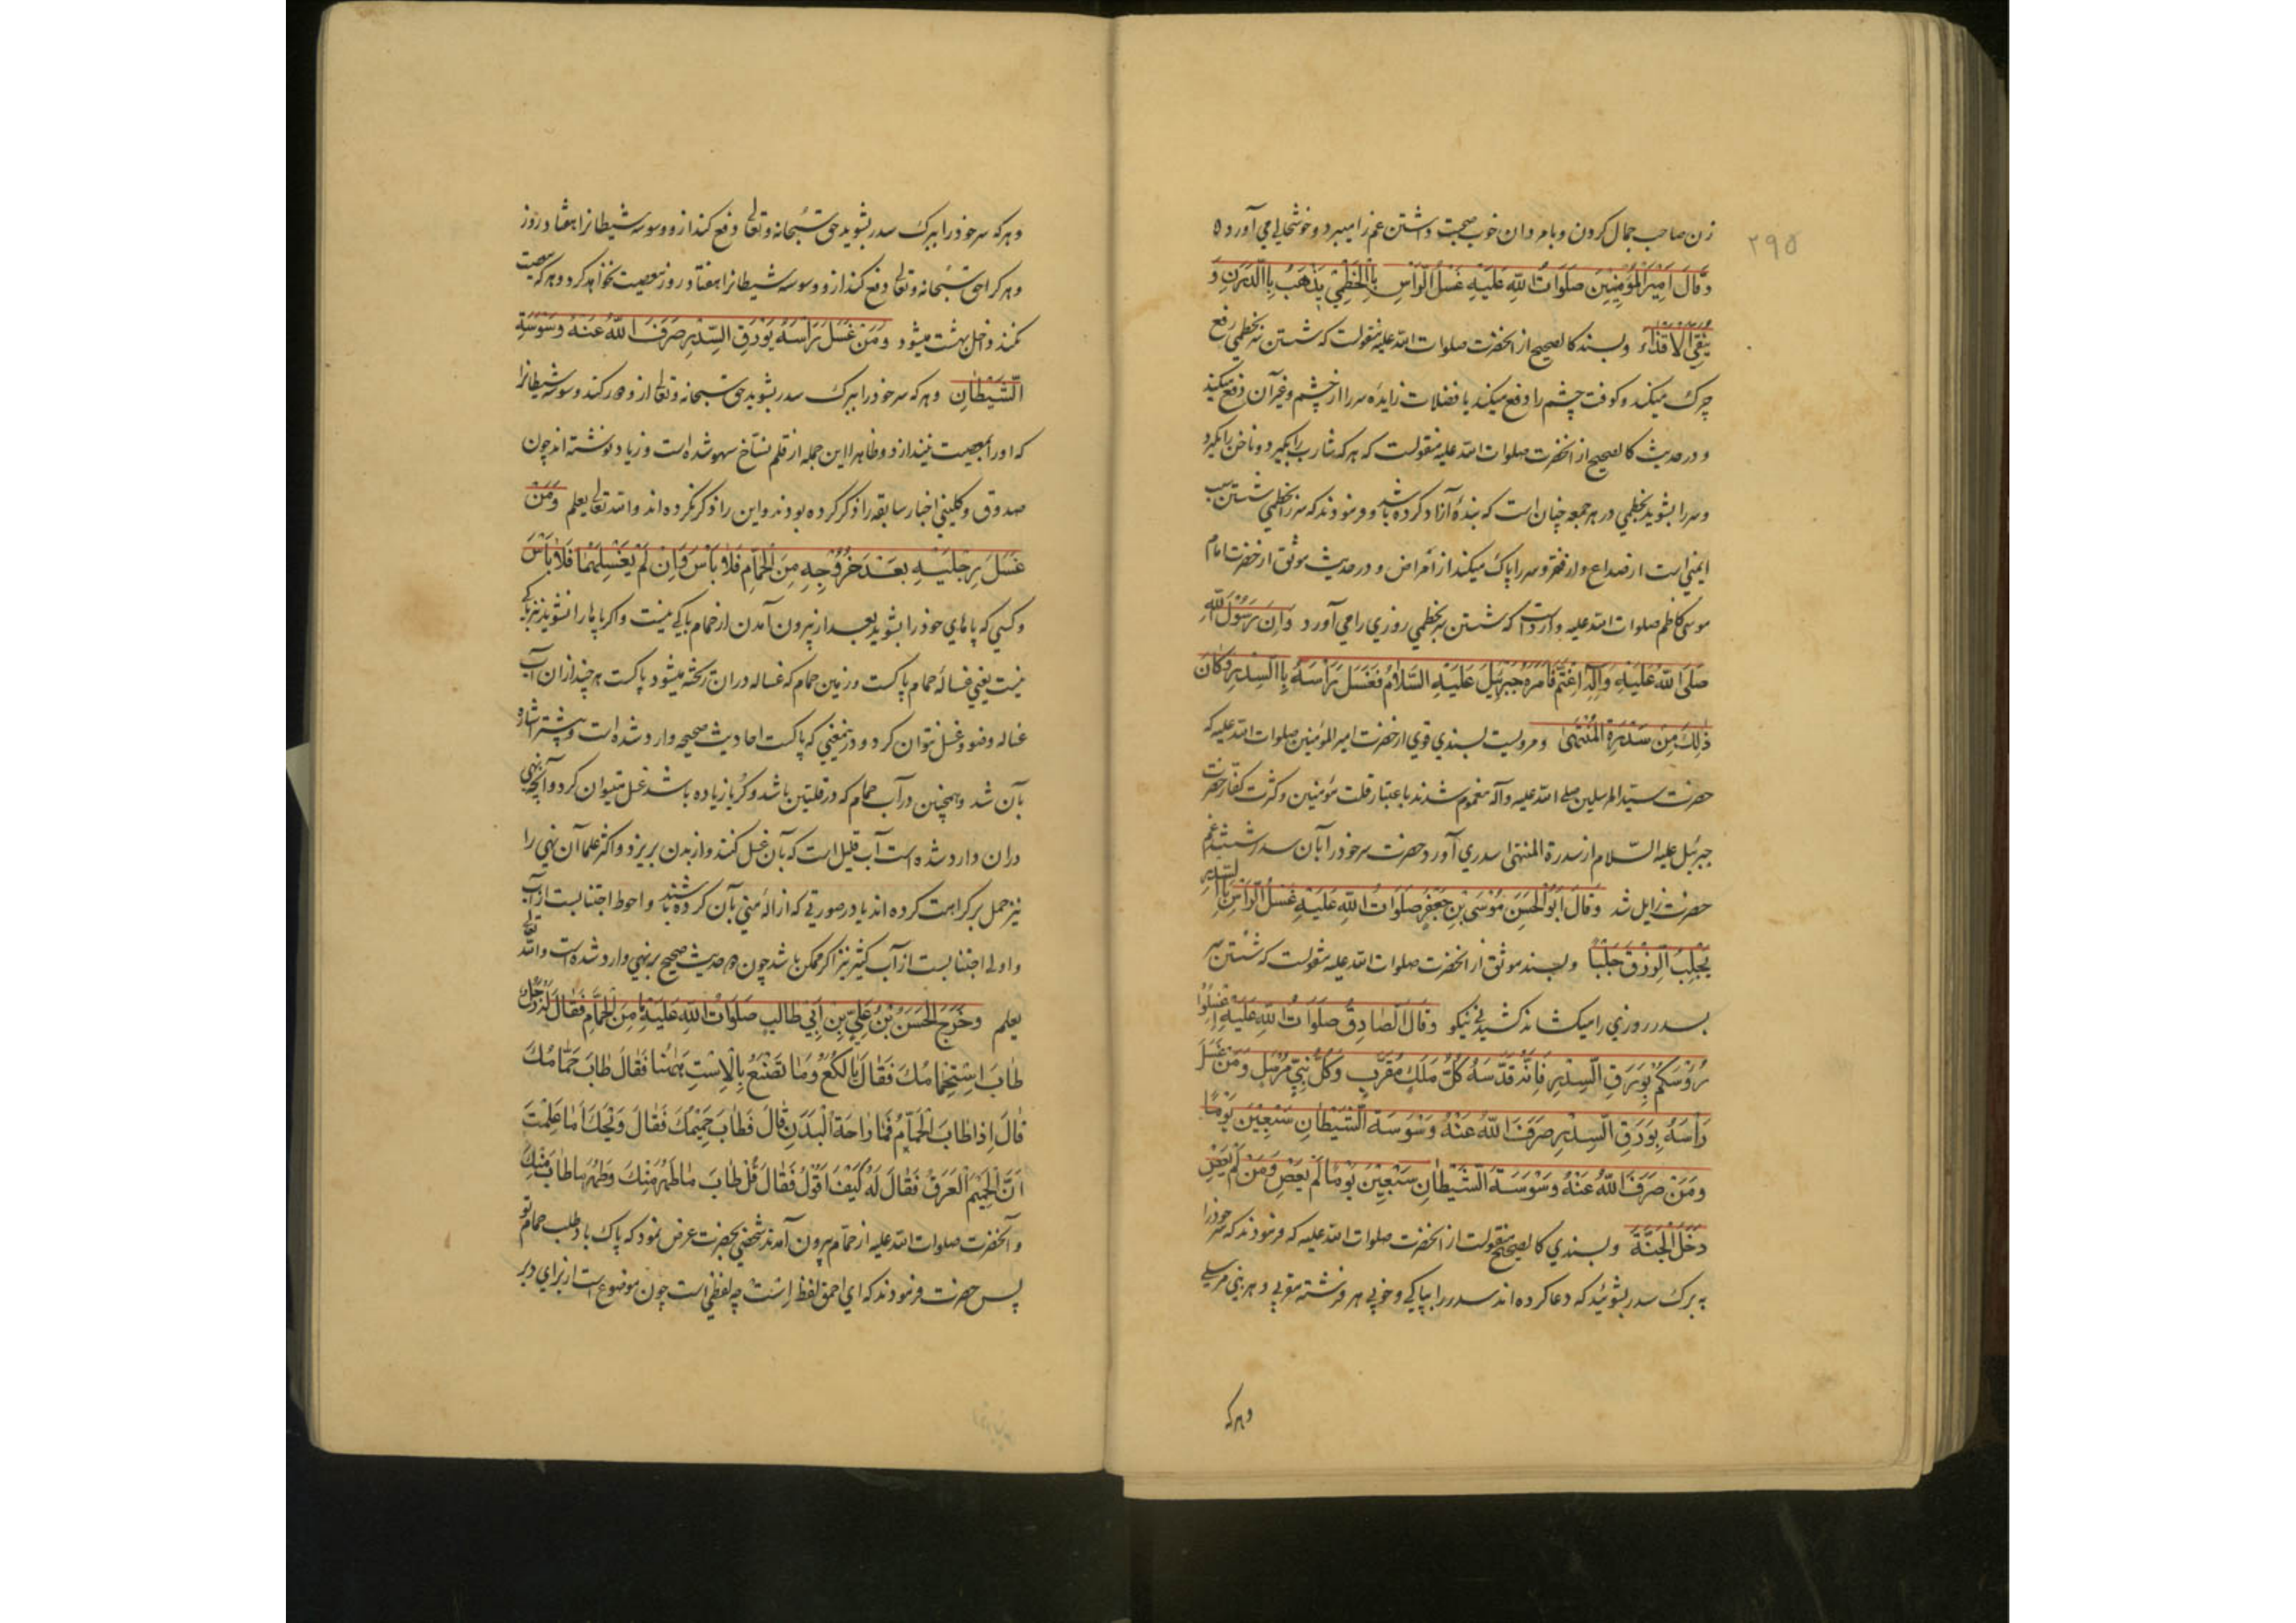 ۲۹۵
زن صاحب جمال کردن و با مردان خوب صحبت داشتن غم را میبرد و خوشحالی می آورد ه
وَقَالَ اَمِيْرُ الْمُؤْمِنِيْنَ صَلَوَاتُ اللّٰهِ عَلَيْهِ غَسْلُ الرَّأْسِ بِالْخَطْمِيِّ يَذْهَبُ بِالدَّرَنِ وَ
يَنْقِي الْاَقْذَاءَ وبسند کالصحیح از انحضرت صلوات الله علیه منقولست که شستن سر بخطمی رفع
چرک میکند و کوفت چشم را دفع میکند یا فضلات زایده سر را از چشم و غیر آن دفع میکند
و در حدیث کالصحیح از انحضرت صلوات الله علیه منقولست که هر که شارب را بگیرد و ناخن را بگیرد
و سر را بشوید بخطمی در هر جمعه چنان است که بندهٔ آزاد کرده باشد و فرمودند که سر را بخطمی شستن سبب
ایمنی است از صداع و از فقر و سر را پاک میکند از امراض و در حدیث موثق از حضرت امام
موسی کاظم صلوات الله علیه وارد است که شستن سر بخطمی روزی را می آورد وَاِنَّ رَسُوْلَ اللّٰهِ
صَلَّى اللّٰهُ عَلَيْهِ وَاٰلِهِ اغْتَمَّ فَاَمَرَهُ جَبْرَئِيْلُ عَلَيْهِ السَّلَامُ فَغَسَلَ رَأْسَهُ بِالسِّدْرِ وَكَانَ
ذٰلِكَ مِنْ سِدْرَةِ الْمُنْتَهٰى و مرویست بسندی قوی از حضرت امیر المؤمنین صلوات الله علیه که
حضرت سید المرسلین صلی الله علیه و آله مغموم شدند باعتبار قلت مؤمنین و کثرت کفار حضرت
جبرئیل علیه السلام از سدرة المنتهی سدری آورد حضرت سر خود را بان سدر شستند غم
حضرت زایل شد وَقَالَ اَبُو الْحَسَنِ مُوْسَى بْنُ جَعْفَرٍ صَلَوَاتُ اللّٰهِ عَلَيْهِ غَسْلُ الرَّأْسِ بِالسِّدْرِ
يَجْلِبُ الرِّزْقَ جَلْبًا وبسند موثق از انحضرت صلوات الله علیه منقولست که شستن سر
بسدر روزی را میکشاند کشیدنی نیکو وَقَالَ الصَّادِقُ صَلَوَاتُ اللّٰهِ عَلَيْهِ اِغْسِلُوْا
رُؤُسَكُمْ بِوَرَقِ السِّدْرِ فَاِنَّهُ قَدَّسَهُ كُلُّ مَلَكٍ مُقَرَّبٍ وَكُلُّ نَبِيٍّ مُرْسَلٍ وَمَنْ غَسَلَ
رَأْسَهُ بِوَرَقِ السِّدْرِ صَرَفَ اللّٰهُ عَنْهُ وَسْوَسَةَ الشَّيْطَانِ سَبْعِيْنَ يَوْمًا
وَمَنْ صَرَفَ اللّٰهُ عَنْهُ وَسْوَسَةَ الشَّيْطَانِ سَبْعِيْنَ يَوْمًا لَمْ يَعْصِ وَمَنْ لَمْ يَعْصِ
دَخَلَ الْجَنَّةَ وبسندی کالصحیح منقولست از انحضرت صلوات الله علیه که فرمودند که سر خود را
به برک سدر بشوئید که دعا کرده اند سدر را بپاکی و خوبی هر فرشته مقربی و هر نبی مرسلی
وهرکه
وهر که سر خود را ببرک سدر بشوید حق سبحانه و تعالی دفع کند از و وسوسه شیطانرا هفتاد روز
و هر کرا حق سبحانه و تعالی دفع کند از و وسوسه شیطانرا هفتاد روز معصیت نخواهد کرد و هر که معصیت
نکند داخل بهشت میشود وَمَنْ غَسَلَ رَأْسَهُ بِوَرَقِ السِّدْرِ صَرَفَ اللّٰهُ عَنْهُ وَسْوَسَةَ
الشَّيْطَانِ و هر که سر خود را ببرک سدر بشوید حق سبحانه و تعالی از و دور کند وسوسه شیطانرا
که او را بمعصیت نیندازد و ظاهرا این جمله از قلم نساخ سهو شده است و زیاد نوشته اند چون
صدوق و کلینی اخبار سابقه را ذکر کرده بودند و این را ذکر نکرده اند و الله تعالی یعلم وَمَنْ
غَسَلَ رِجْلَيْهِ بَعْدَ خُرُوْجِهِ مِنَ الْحَمَّامِ فَلَا بَأْسَ وَاِنْ لَمْ يَغْسِلْهُمَا فَلَا بَأْسَ
و کسی که پاهای خود را بشوید بعد از بیرون آمدن از حمام باکی نیست و اگر پاها را نشوید نیز باکی
نیست یعنی غساله حمام پاکست و زمین حمام که غساله دران ریخته میشود پاکست هر چند ازان آب
غساله وضو و غسل نتوان کرد و درینمعنی که پاکست احادیث صحیحه وارد شده است و پیشتر اشاره
بآن شد و همچنین در آب حمام که در قلتین باشد و کر یا زیاده باشد غسل میتوان کرد و آنچه نهی
دران وارد شده است آب قلیل است که بآن غسل کنند و از بدن بریزد و اکثر علما آن نهی را
نیز حمل بر کراهت کرده اند یا در صورتی که ازالهٔ منی بآن کرده باشند و احوط اجتنابست از آب
و اولی اجتنابست از آب کثیر نیز اگر ممکن باشد چون در حدیث صحیح بر نهی وارد شده است والله تعالی
یعلم وَخَرَجَ الْحَسَنُ بْنُ عَلِيِّ بْنِ اَبِيْ طَالِبٍ صَلَوَاتُ اللّٰهِ عَلَيْهِمَا مِنَ الْحَمَّامِ فَقَالَ لَهُ رَجُلٌ
طَابَ اسْتِحْمَامُكَ فَقَالَ يَا لُكَعُ وَمَا تَصْنَعُ بِالْاِسْتِ هٰهُنَا فَقَالَ طَابَ حَمَّامُكَ
قَالَ اِذَا طَابَ الْحَمَّامُ فَمَا رَاحَةُ الْبَدَنِ قَالَ فَطَابَ حَمِيْمُكَ فَقَالَ وَيْحَكَ اَمَا عَلِمْتَ
اَنَّ الْحَمِيْمَ الْعَرَقُ فَقَالَ لَهُ كَيْفَ اَقُوْلُ فَقَالَ قُلْ طَابَ مَا طَهُرَ مِنْكَ وَطَهُرَ مَا طَابَ مِنْكَ
و آنحضرت صلوات الله علیه از حمام بیرون آمدند شخصی بحضرت عرض نمود که پاک باد طلب حمام تو
پس حضرت فرمودند که ای احمق لفظ اِسْت چه لفظی است چون موضوع است از برای دبر